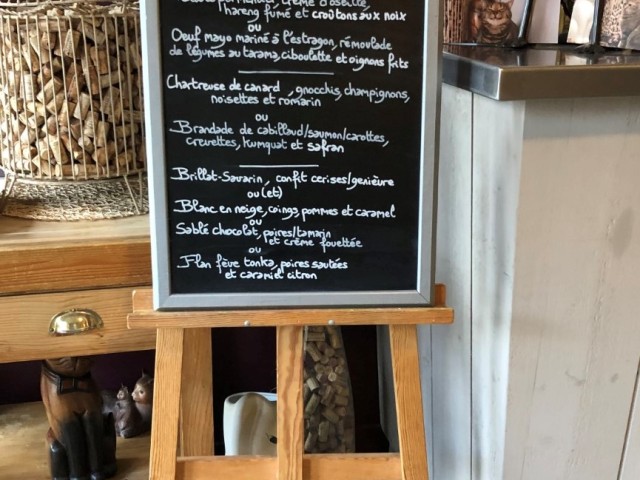 crème d'oseille,
hareng fumé et croûtons aux noix
ou
Oeuf mayo mariné à l'estragon, rémoulade
de légumes au tarama, ciboulette et oignons frits
Chartreuse de canard, gnocchis, champignons,
noisettes et romarin
ou
Brandade de cabillaud/saumon/carottes,
crevettes, kumquat et safran
Brillat-Savarin, confit cerises/genièvre
ou (et)
Blanc en neige, coings, pommes et caramel
ou
Sablé chocolat, poires/tamarin
et crème fouettée
ou
Flan fève tonka, poires sautées
et caramel citron